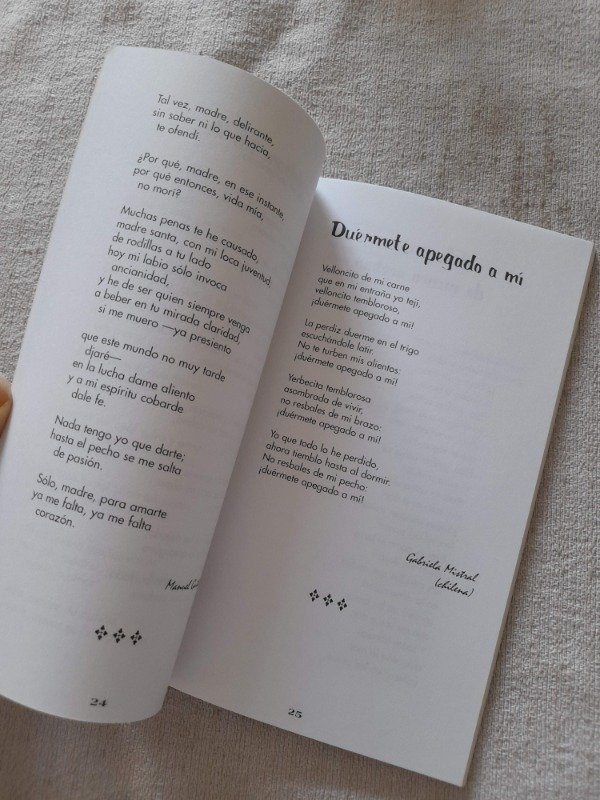 Tal vez, madre, delirante,
sin saber ni lo que hacia,
te ofendí.
¿Por qué, madre, en ese instante,
por qué entonces, vida mía,
no morí?
Muchas penas te he causado,
madre santa, con mi loca juventud:
de rodillas a tu lado
hoy mi labio sólo invoca
ancianidad,
y he de ser quien siempre vengo
a beber en tu mirada claridad,
si me muero —ya presiento
que este mundo no muy tarde
djaré—
en la lucha dame aliento
y a mi espíritu cobarde
dale fe.
Nada tengo yo que darte;
hasta el pecho se me salta
de pasión.
Sólo, madre, para amarte
ya me falta, ya me falta
corazón.
Manuel
24
Duérmete apegado a mí
Velloncito de mi carne
que en mi entraña yo tejí,
velloncito tembloroso,
¡duérmete apegado a mí!
La perdiz duerme en el trigo
escuchándole latir.
No te turben mis alientos:
¡duérmete apegado a mí!
Yerbecita temblorosa
asombrada de vivir,
no resbales de mi brazo:
¡duérmete apegado a mí!
Yo que todo lo he perdido,
ahora tiemblo hasta al dormir.
No resbales de mi pecho:
¡duérmete apegado a mí!
Gabriela Mistral
(chilena)
25